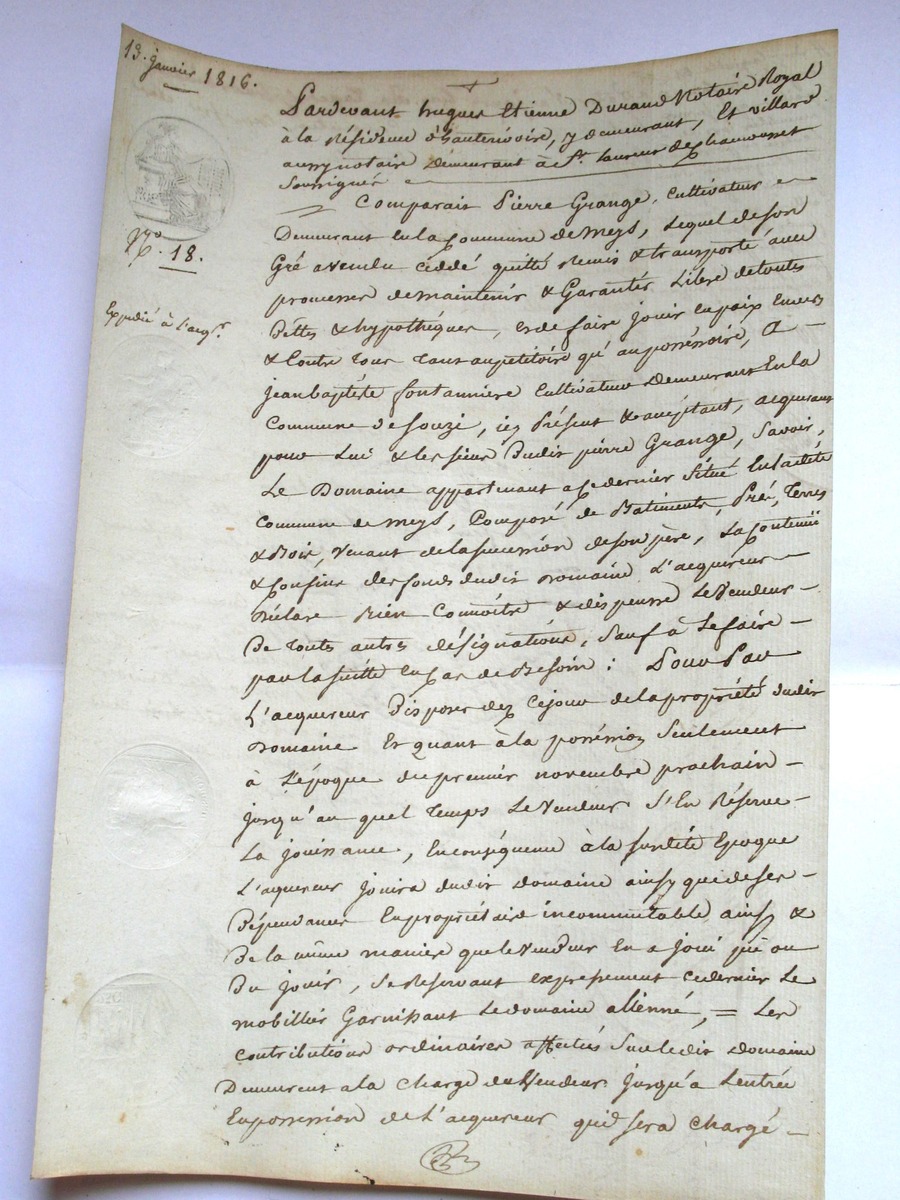 13. janvier 1816.
Pardevant hugues Etienne Durand Notaire Royal
à la Résidence d'hauterivoire, y demeurant, Et villard
aussy notaire Demeurant à St. laurent de chamousset
Soussignés
Comparait Pierre Grange, Cultivateur
Demeurant En la Commune de Meys, Lequel de son
Gré a vendu céddé quitté Remis & transporté avec
promesse de maintenir & Garantir Libre de toutes
Dettes & hypothéques, et de faire jouir en paix Envers
& Contre Tous Tant au pétitoire qu'au possessoire, A
jean baptiste fontannière Cultivateur Demeurant En la
Commune de Souzi, icy Présent & acceptant, acquerant
pour Lui & les siens Dudit pierre Grange, Savoir,
Le Domaine appartenant a ce dernier Situé En ladite
Commune de Meys, Composé de Batiments, Pré, Terres
& Bois, venant de la succession de son père, La Contenüe
& Confins des fonds dudit Domaine L'acquereur
Déclare Bien Connoitre & dispense Le Vendeur
De Toute autre désignation, Sauf à Le faire
par la suitte en cas de Besoin : Pour Par
L'acquereur Disposer dez Cejour de la propriété dudit
Domaine Et quant à la possession Seulement
à L'époque du premier novembre prochain
jusqu'au quel Temps Le Vendeur S'En Réserve
La jouissance, En conséquence à la susdite Epoque
L'aquereur jouira dudit Domaine ainsy que de ses
Dépendances En propriétaire incommutable ainsy &
De la même manière que le Vendeur En a joui pu ou
Du jouir, Se Réservant expressement ce dernier Le
mobillier Garnissant Le domaine alienné, = Les
Contributions ordinaires affectées Sur ledit Domaine
Demeurent a la Charge du Vendeur Jusqu'à Lentrée
En possession de L'acquereur qui sera Chargé
No. 18.
Expedié à l'acqr.